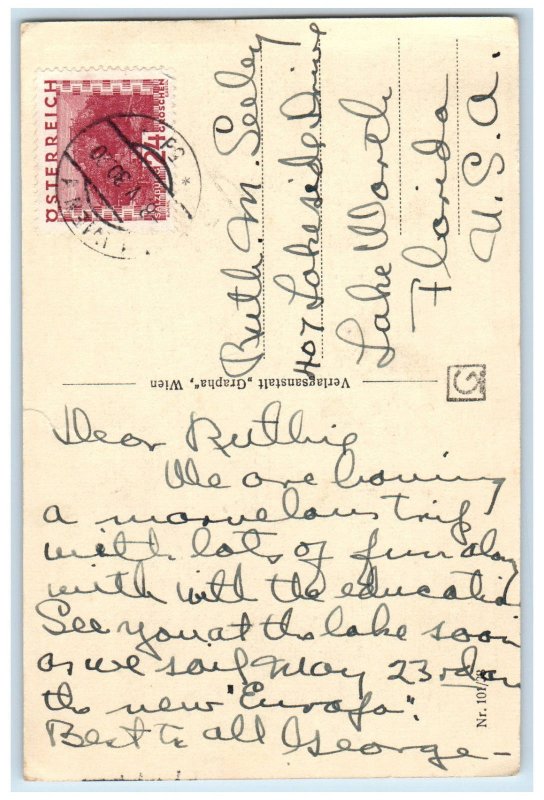 ÖSTERREICH
24
GROSCHEN
WIEN
V 30
Ruth M. Seeley
407 Lakeside Drive
Lake Worth
Florida
U.S.A.
Verlagsanstalt „Grapha", Wien
G
Dear Ruthie
We are having
a marvelous trip
with lots of fun along
with with the education
See you at the lake soon
as we sail May 23rd on
the new "Europa".
Best to all George-
Nr. 101/28